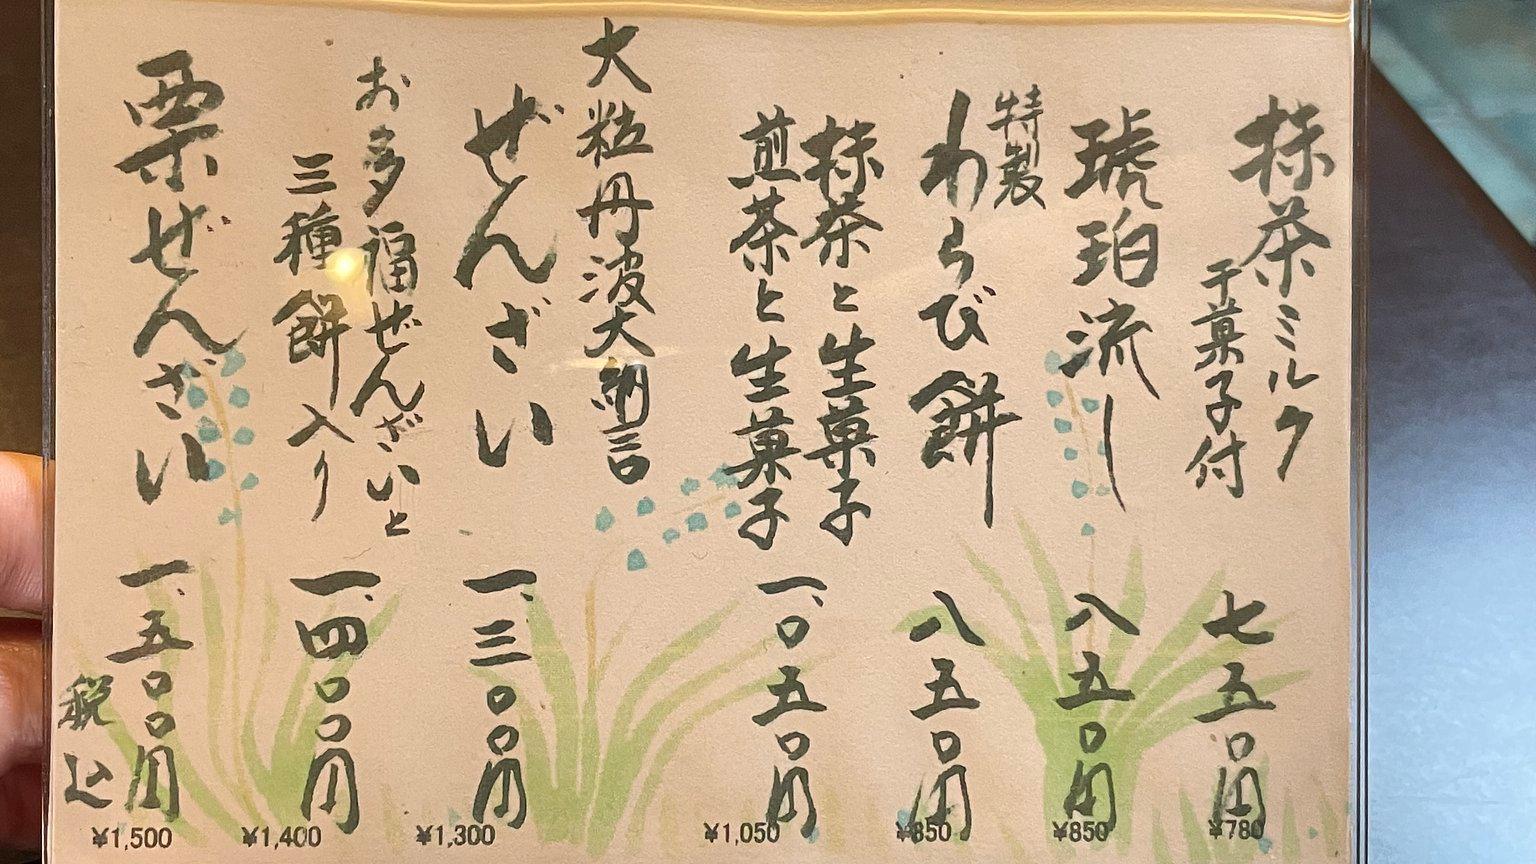 抹茶ミルク
干菓子付
七五〇円
琥珀流し
八五〇円
特製
わらび餅
八五〇円
抹茶と生菓子
煎茶と生菓子
一、〇五〇円
大粒丹波大納言
ぜんざい
一、三〇〇円
お多福ぜんざいと
三種餅入り
一、四〇〇円
栗ぜんざい
一、五〇〇円
税込
¥1,500
¥1,400
¥1,300
¥1,050
¥850
¥850
¥780